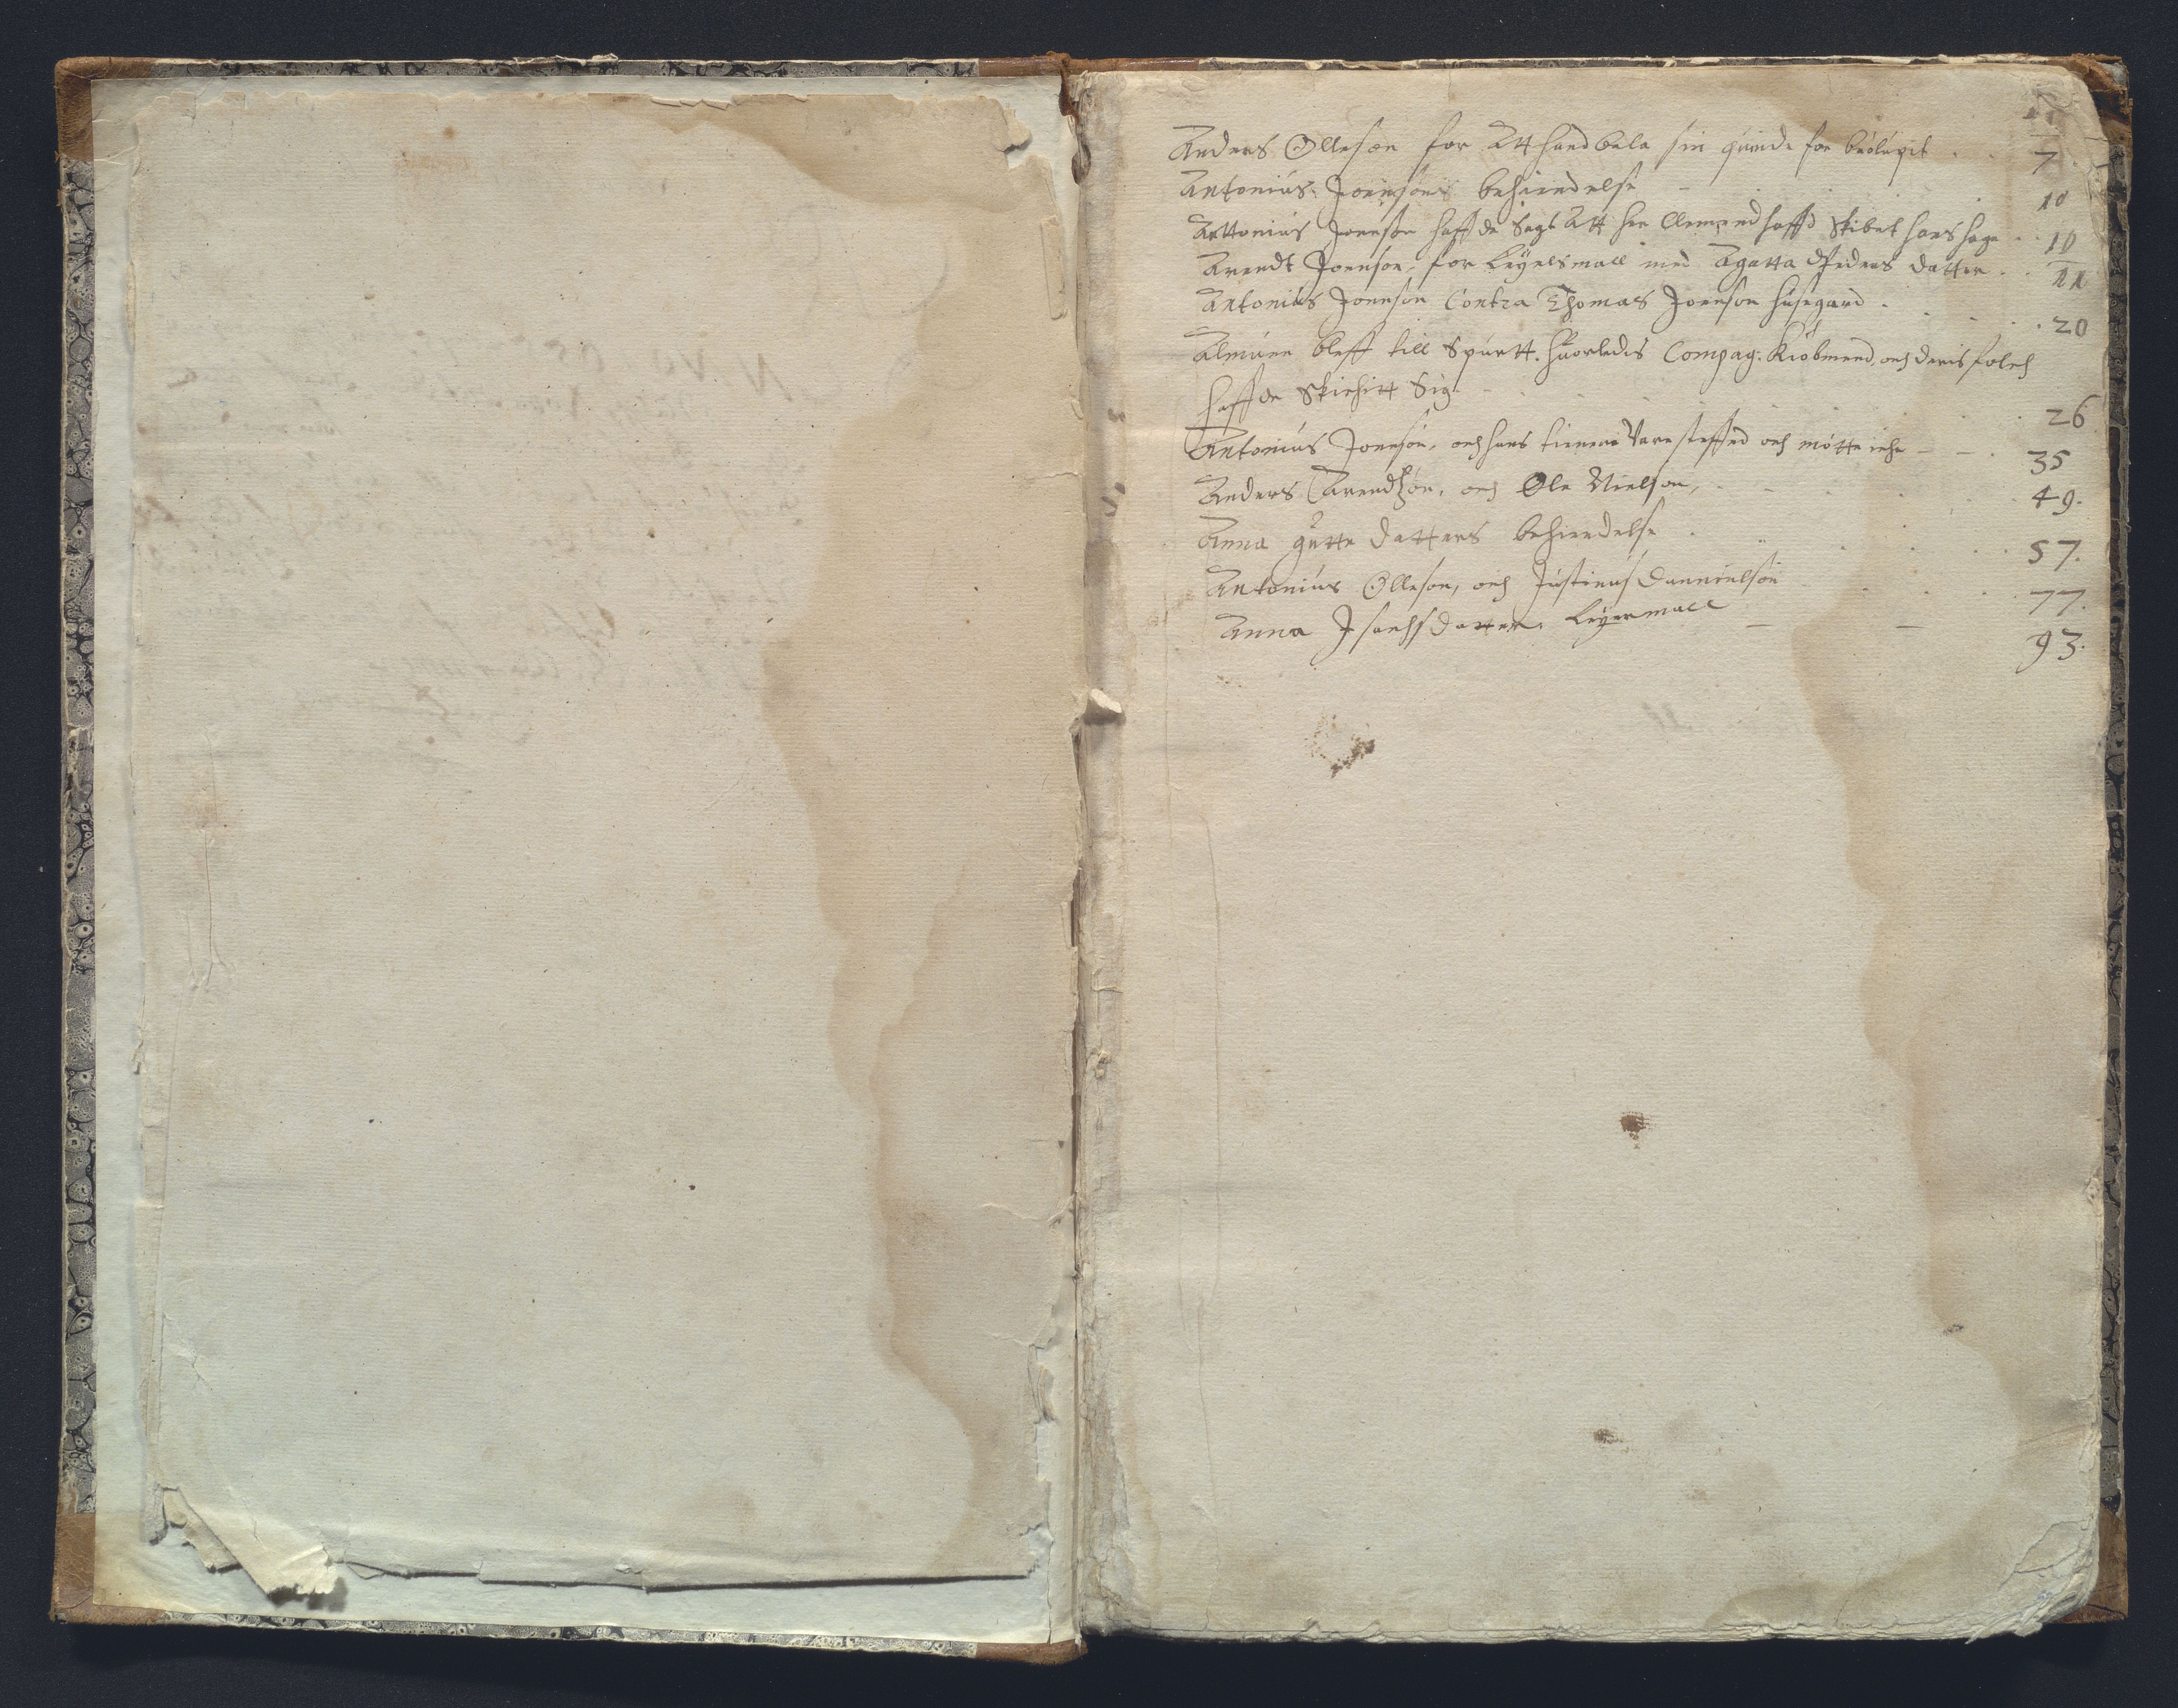 Anders Ollesøn for Att hand bela sin quinde for brølupit . . 7.
Antonius Joensøns behiendelse - . . . 10
Anttonius Joensøn haffde Sagt Att her Clemend haffd skibet hans hage . . 10
Arendt Joensøn, for Leyelsmall med Agatta Peders datter . . 11
Antonius Joensøn Contra Thomas Joensøn husegard . . . . 20
Almuen bleff till Spurtt. huorledis Compag: Kiøbmend, och deris folch
haffde Skichitt Sig - . . . . 26
Antonius Joensøn, och hans Vare steffned och møtte iche - - . 35
Anders Arendtzøn, och Ole Nielsøn, . . . . 49.
Anna gutte datters behiendelse . . . . 57.
Antonius Ollesøn, och Justinus Dannielsøn . . . 77.
Anna Isachsdatter, Leyermall - - 93.